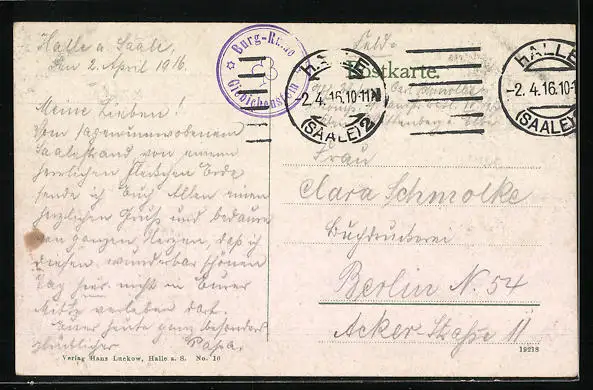 Halle a Saale,
den 2. April 1916
Meine Lieben!
Vom sagenumwobenen
Saalestrand von einem
herrlichen Fleckchen Erde
sende ich Euch Allen einen
herzlichen Gruß und bedaure
von ganzem Herzen, daß ich
diesen wunderbar schönen
Tag hier nicht in Eurer
Mitte verleben darf.
Euer heute ganz besonders
glücklicher Papa.
Verlag Hans Luckow, Halle a. S. No. 10
Burg-Ruine
Giebichenstein
HALLE
-2.4.16.10-11V
(SAALE) 2
HALLE
-2.4.16.10-
(SAALE)
Feld-
Postkarte.
Frau
Clara Schmolke
Buchdruckerei
Berlin N. 54
Acker Straße 11
19218